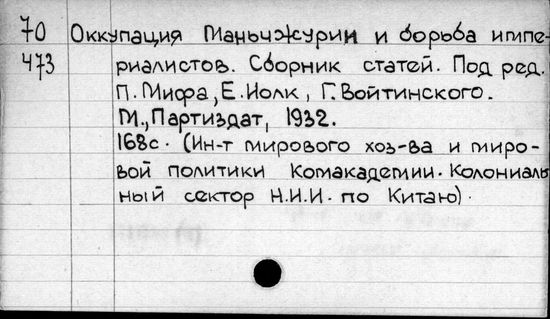 70 Оккупация Маньчжурии и борьба импе-
473 риалистов. Сборник статей. Под ред.
П. Мифа, Е. Иолк, Г. Войтинского.
М., Партиздат, 1932.
168с. (Ин-т мирового хоз-ва и миро-
вой политики Комакадемии. Колониаль
ный сектор Н.И.И. по Китаю).